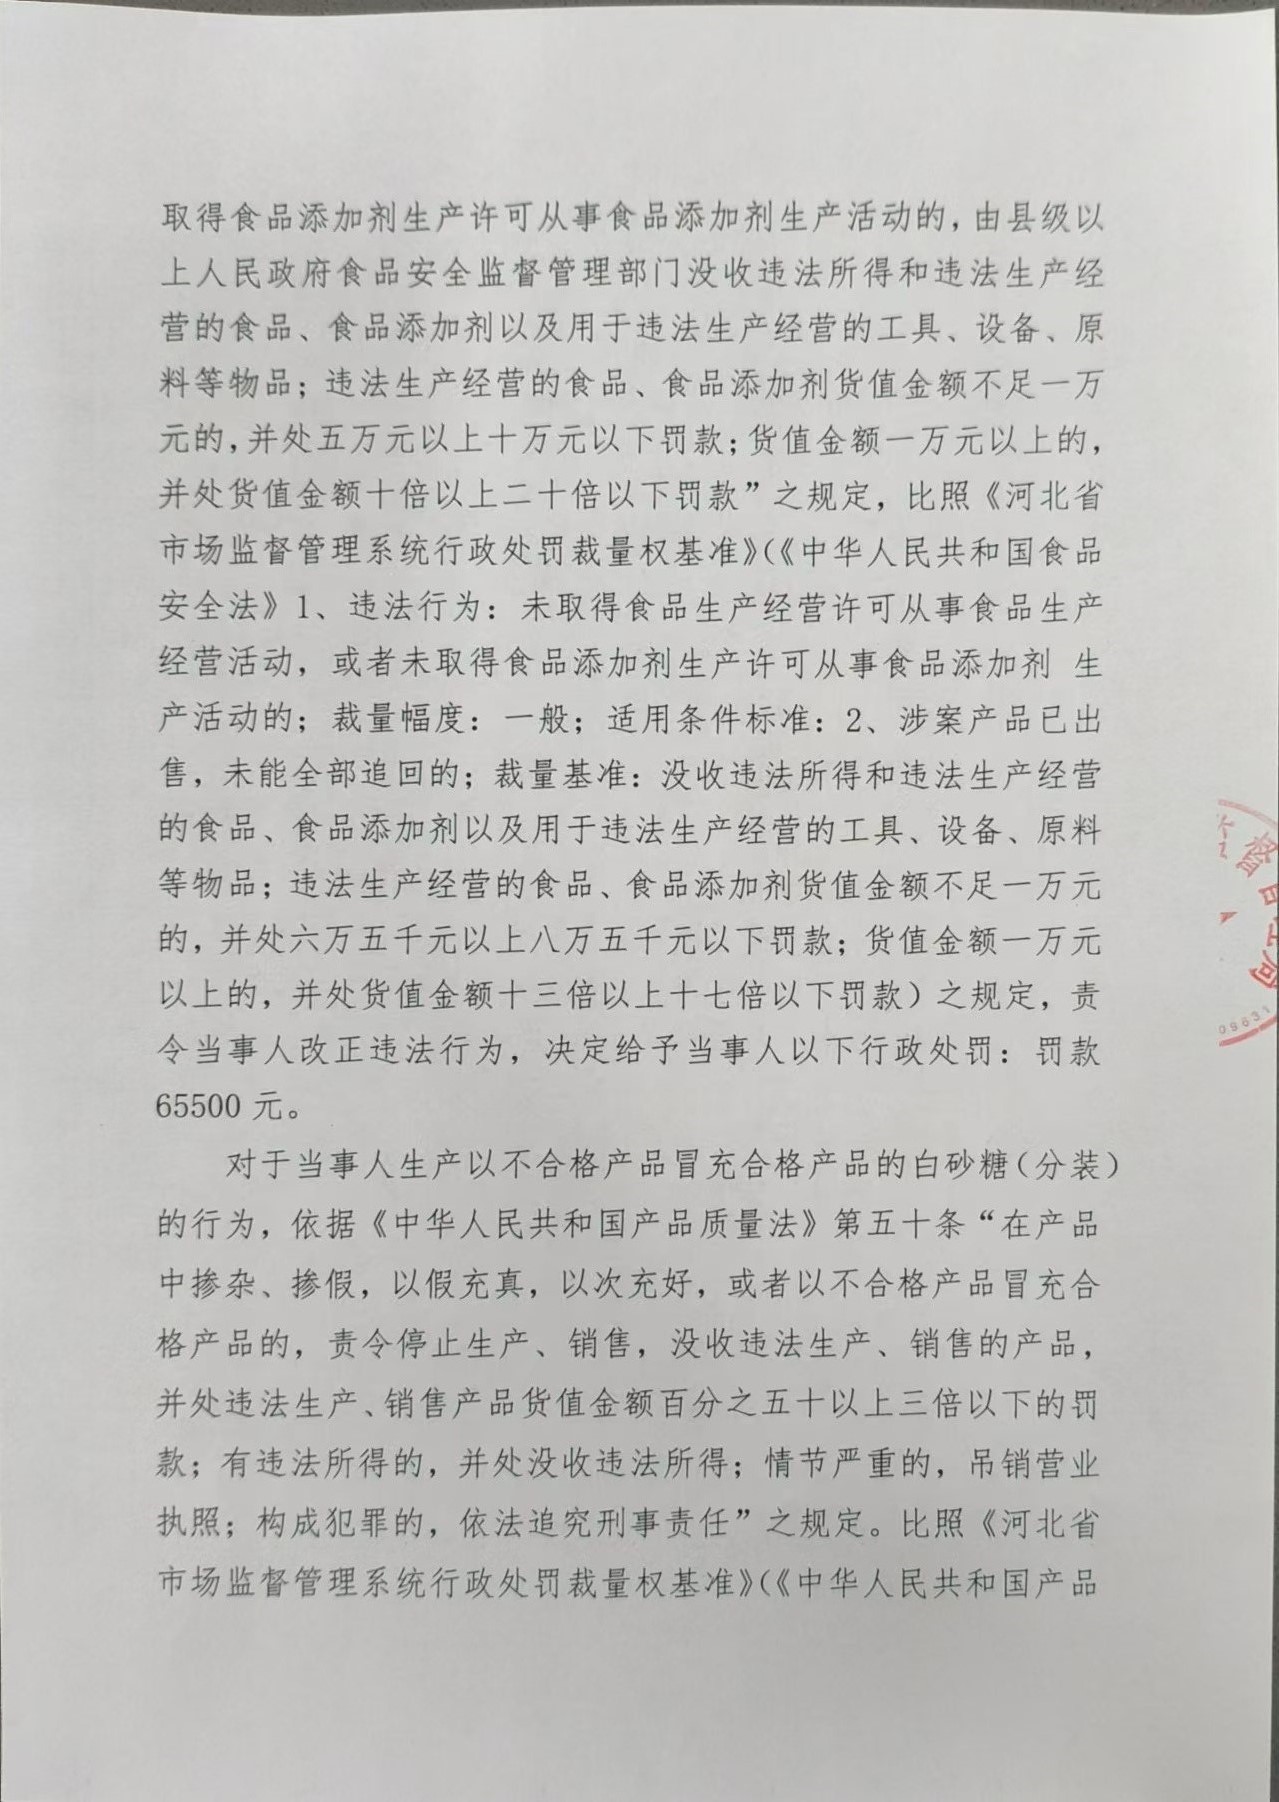 取得食品添加剂生产许可从事食品添加剂生产活动的，由县级以
上人民政府食品安全监督管理部门没收违法所得和违法生产经
营的食品、食品添加剂以及用于违法生产经营的工具、设备、原
料等物品；违法生产经营的食品、食品添加剂货值金额不足一万
元的，并处五万元以上十万元以下罚款；货值金额一万元以上的，
并处货值金额十倍以上二十倍以下罚款”之规定，比照《河北省
市场监督管理系统行政处罚裁量权基准》（《中华人民共和国食品
安全法》1、违法行为：未取得食品生产经营许可从事食品生产
经营活动，或者未取得食品添加剂生产许可从事食品添加剂 生
产活动的；裁量幅度：一般；适用条件标准：2、涉案产品已出
售，未能全部追回的；裁量基准：没收违法所得和违法生产经营
的食品、食品添加剂以及用于违法生产经营的工具、设备、原料
等物品；违法生产经营的食品、食品添加剂货值金额不足一万元
的，并处六万五千元以上八万五千元以下罚款；货值金额一万元
以上的，并处货值金额十三倍以上十七倍以下罚款）之规定，责
令当事人改正违法行为，决定给予当事人以下行政处罚：罚款
65500 元。
对于当事人生产以不合格产品冒充合格产品的白砂糖（分装）
的行为，依据《中华人民共和国产品质量法》第五十条“在产品
中掺杂、掺假，以假充真，以次充好，或者以不合格产品冒充合
格产品的，责令停止生产、销售，没收违法生产、销售的产品，
并处违法生产、销售产品货值金额百分之五十以上三倍以下的罚
款；有违法所得的，并处没收违法所得；情节严重的，吊销营业
执照；构成犯罪的，依法追究刑事责任”之规定。比照《河北省
市场监督管理系统行政处罚裁量权基准》（《中华人民共和国产品
09631